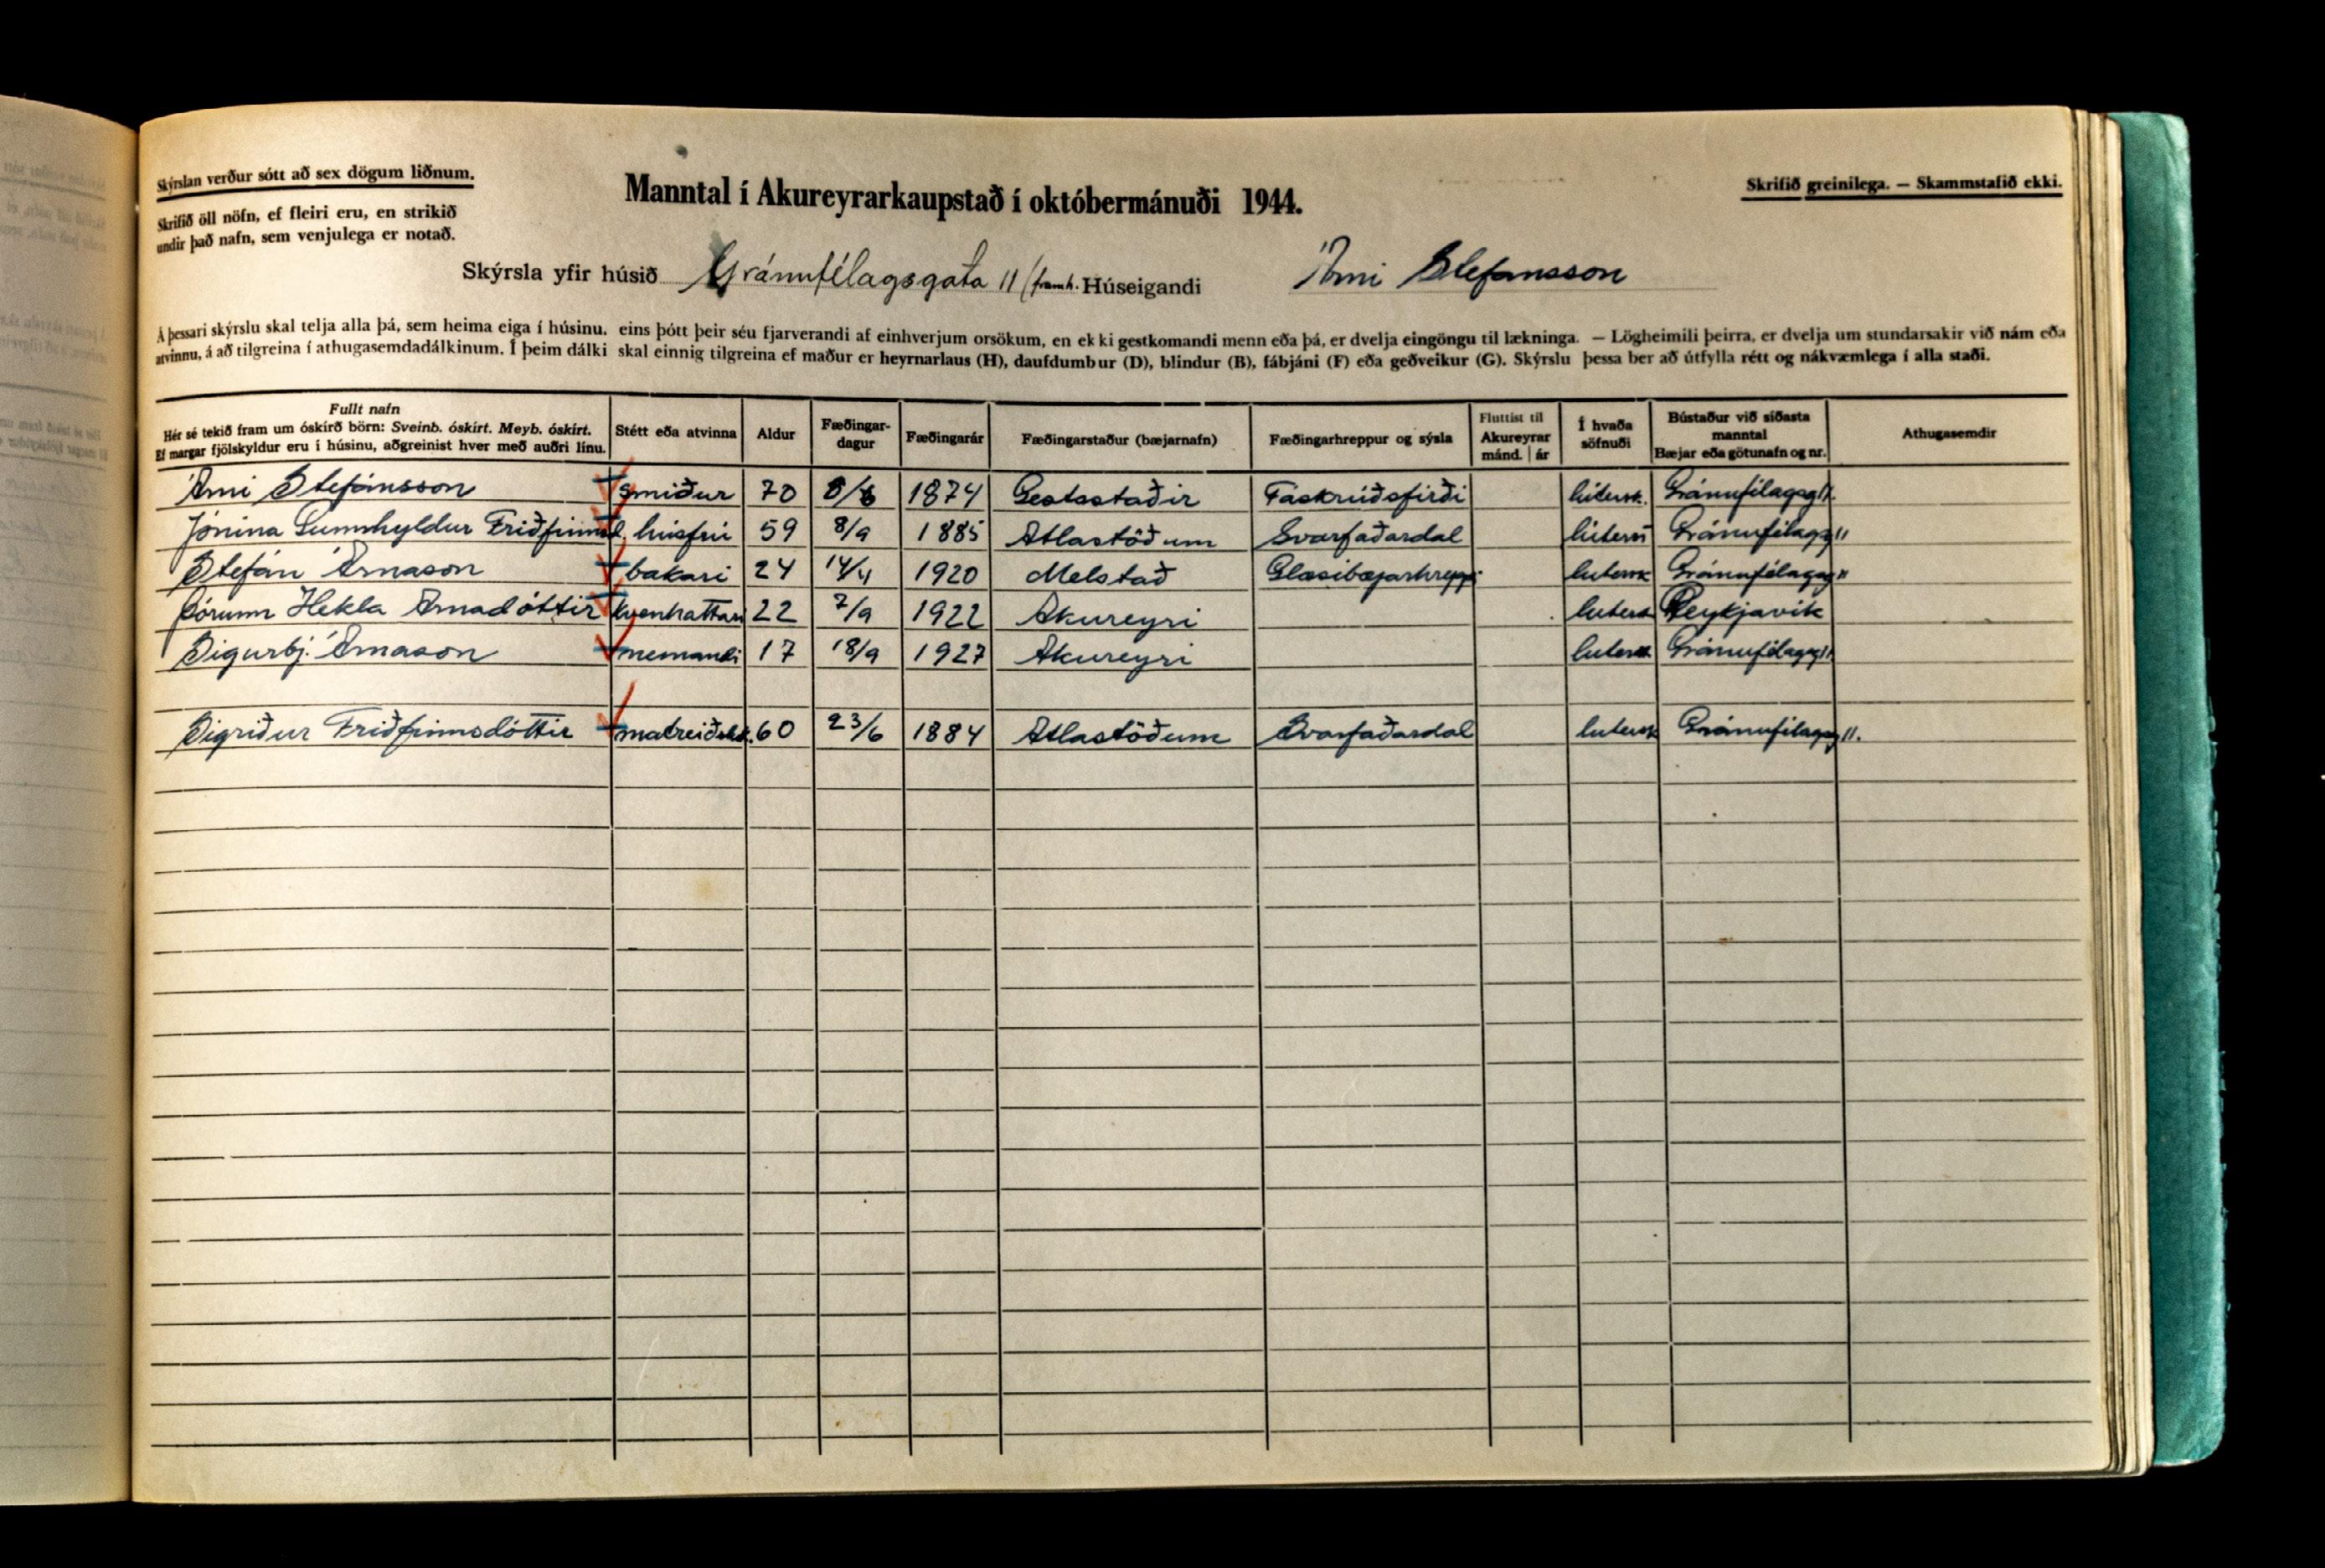 Skýrslan verður sótt að sex dögum liðnum.
Skrifið öll nöfn, ef fleiri eru, en strikið
undir það nafn, sem venjulega er notað.
Manntal í Akureyrarkaupstað í októbermánuði 1944.
Skrifið greinilega. — Skammstafið ekki.
Skýrsla yfir húsið Gránufélagsgata 11 (framh. Húseigandi Árni Stefánsson
Á þessari skýrslu skal telja alla þá, sem heima eiga í húsinu, eins þótt þeir séu fjarverandi af einhverjum orsökum, en ekki gestkomandi menn eða þá, er dvelja eingöngu til lækninga. — Lögheimili þeirra, er dvelja um stundarsakir við nám eða
atvinnu, á að tilgreina í athugasemdadálkinum. Í þeim dálki skal einnig tilgreina ef maður er heyrnarlaus (H), daufdumbur (D), blindur (B), fábjáni (F) eða geðveikur (G). Skýrslu þessa ber að útfylla rétt og nákvæmlega í alla staði.
Fullt nafn
Hér sé tekið fram um óskírð börn: Sveinb. óskírt. Meyb. óskírt.
Ef margar fjölskyldur eru í húsinu, aðgreinist hver með auðri línu.
Stétt eða atvinna
Aldur
Fæðingar-
dagur
Fæðingarár
Fæðingarstaður (bæjarnafn)
Fæðingarhreppur og sýsla
Fluttist til
Akureyrar
mánd. | ár
Í hvaða
söfnuði
Bústaður við síðasta
manntal
Bæjar eða götunafn og nr.
Athugasemdir
Árni Stefánsson smiður 70 1874 Gestsstaðir Fáskrúðsfirði lútersk. Gránufélagsg 11.
Jónina Gunnhyldur Friðfinnsd. húsfrú 59 8/9 1885 Atlastöðum Svarfaðardal Gránufélagsg 11
Stefán Árnason bakari 24 14/4 1920 Melstað Glæsibæjarhreppi lutersk Gránufélagsg 11
Þórunn Hekla Árnadóttir kvenhattari 22 7/9 1922 Akureyri lutersk Reykjavík
Sigurbj. Árnason nemandi 17 18/9 1927 Akureyri lutersk Gránufélagsg 11.
Sigriður Friðfinnsdóttir 60 23/6 1884 Atlastöðum Svarfaðardal lutersk Gránufélagsg 11.